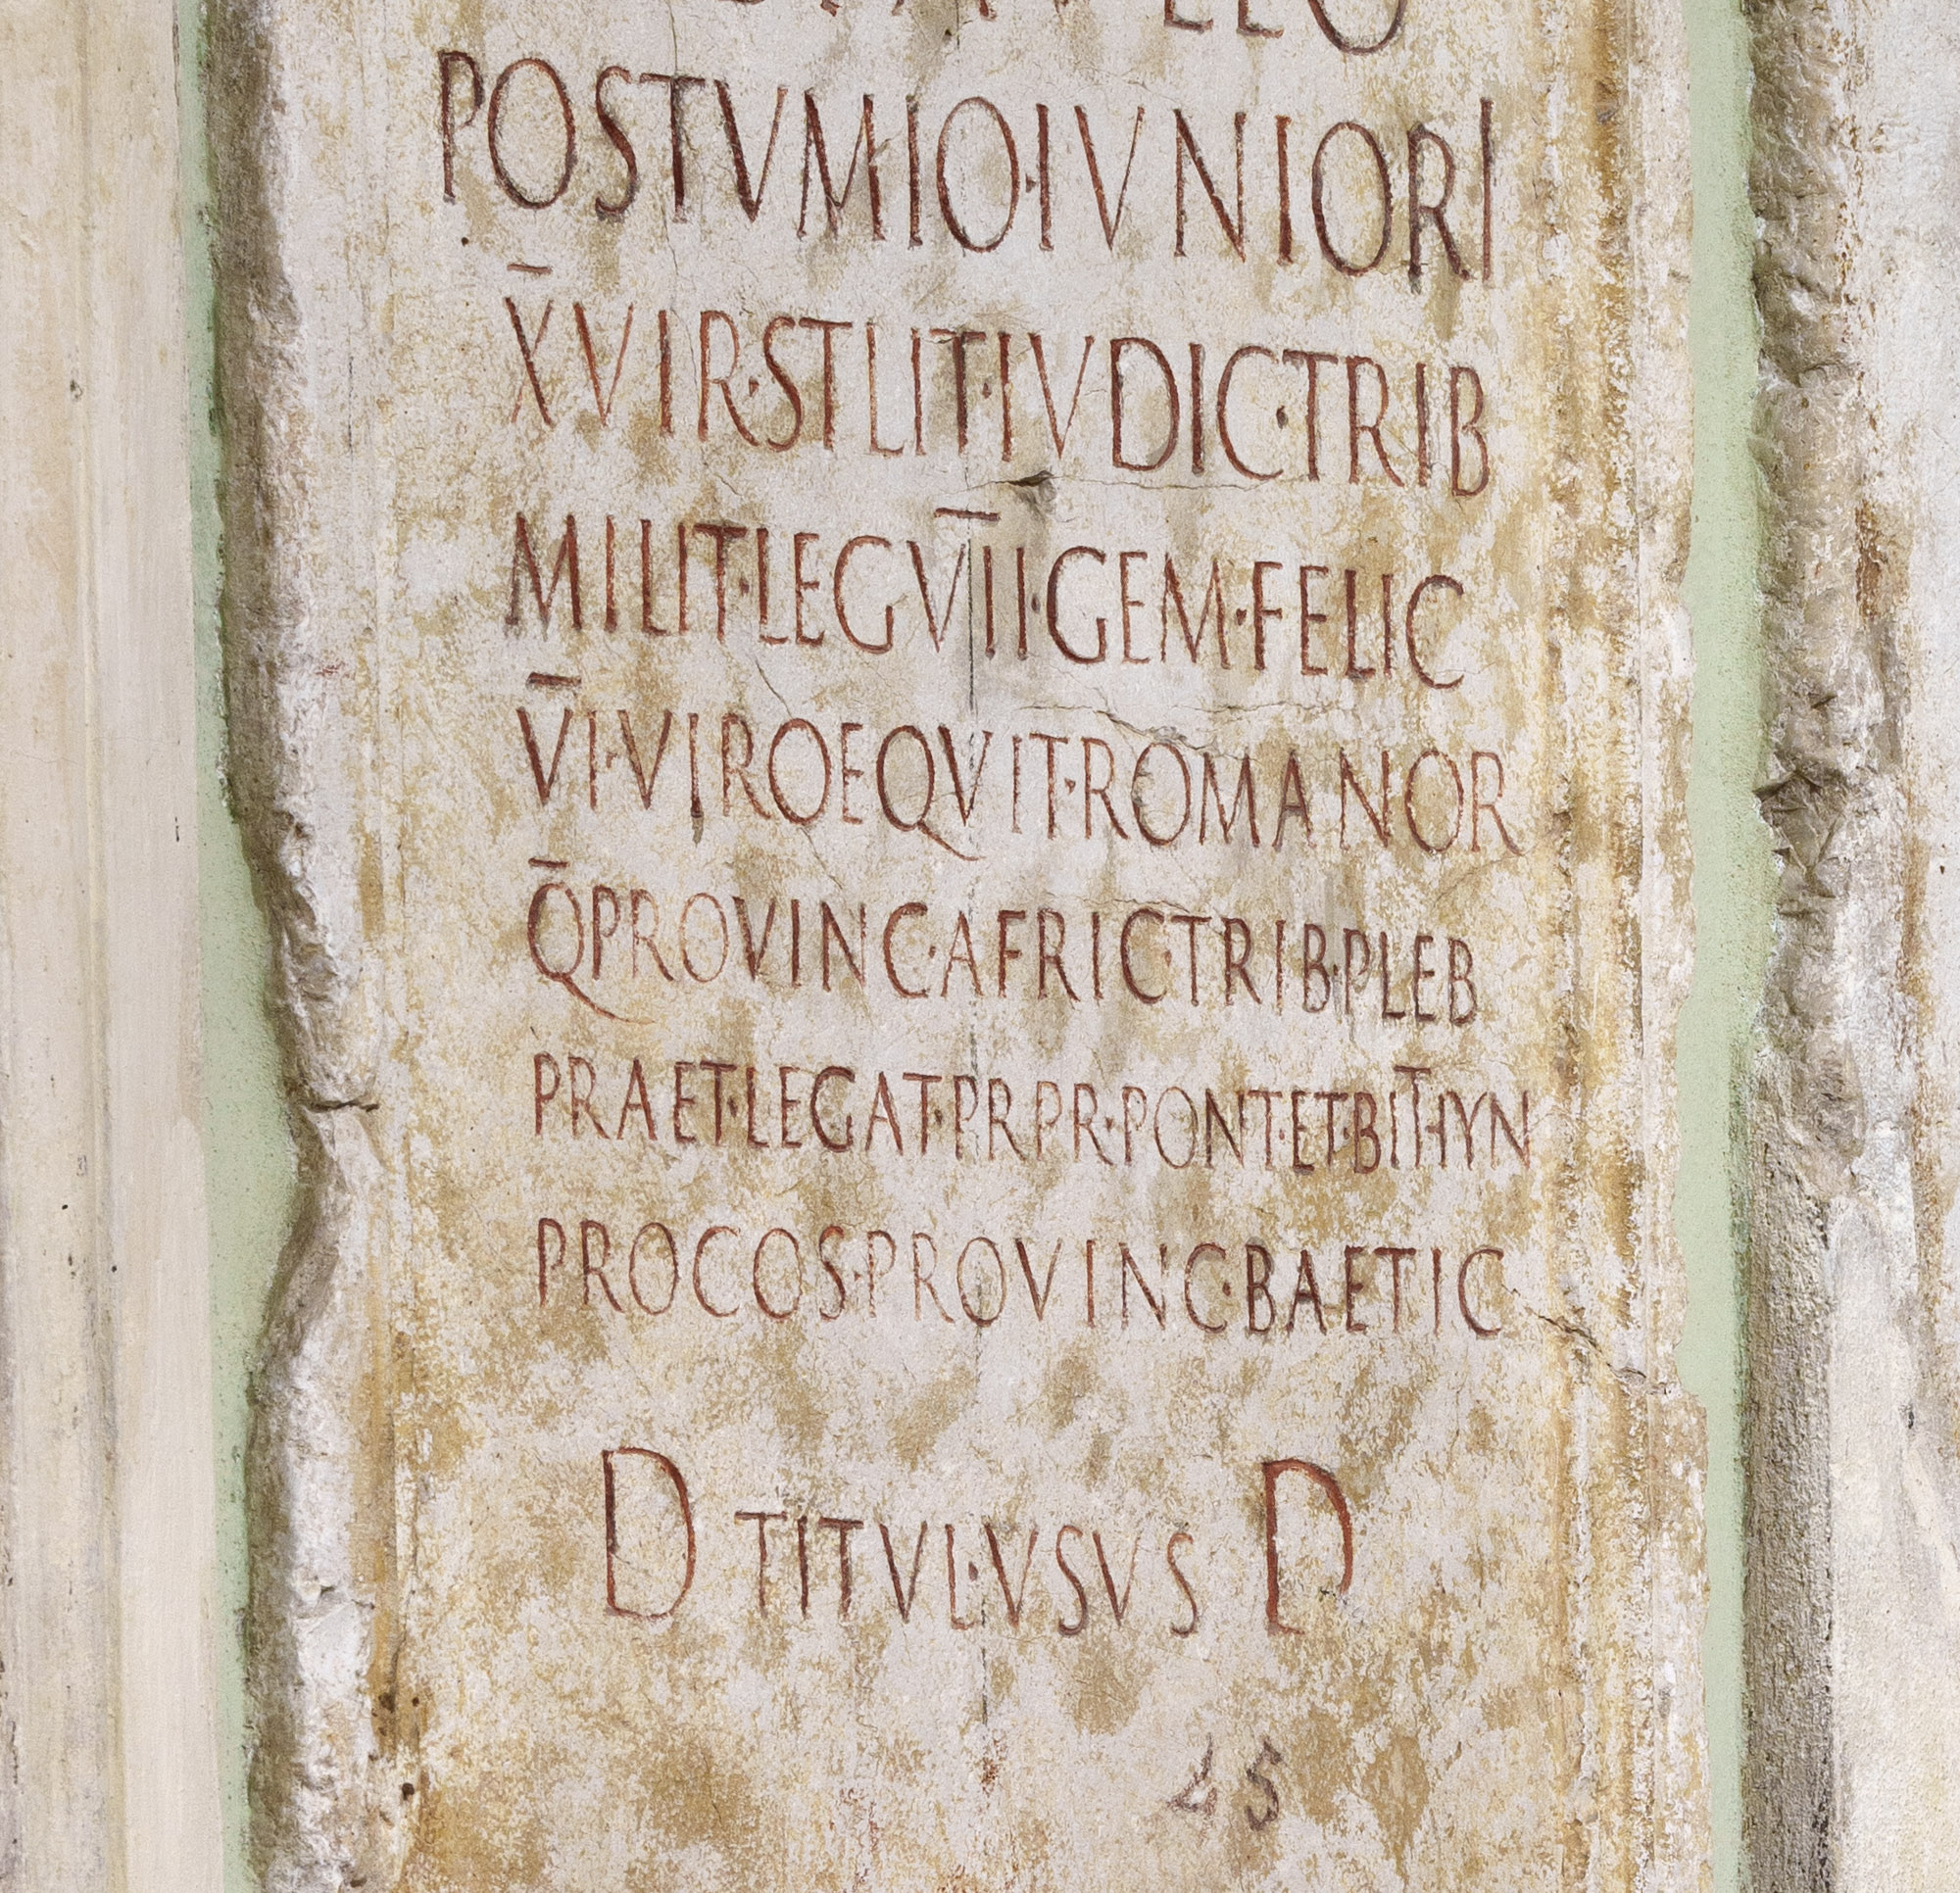 POSTVMIO·IVNIORI
X̅VIR·STLIT·IVDIC·TRIB
MILIT·LEG V̅I̅I·GEM·FELIC
V̅I·VIROEQVIT·ROMANOR
Q̅PROVINC·AFRIC·TRIB·PLEB
PRAET·LEGAT·PRPR·PONT·ET·BITHYN
PROCOS·PROVINC·BAETIC
D TITVL·VSVS D
45